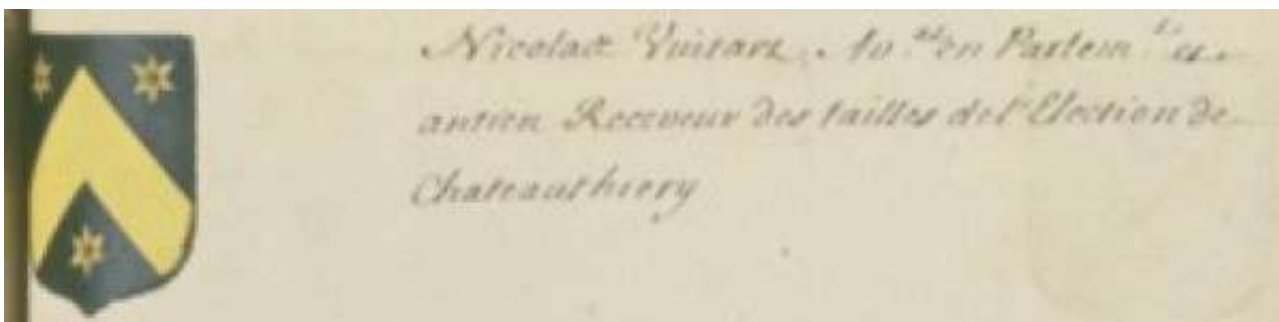 Nicolas Vuitart, Av.at en Parlem.t et
antien Receveur des tailles de l'Election de
Chateauthiery